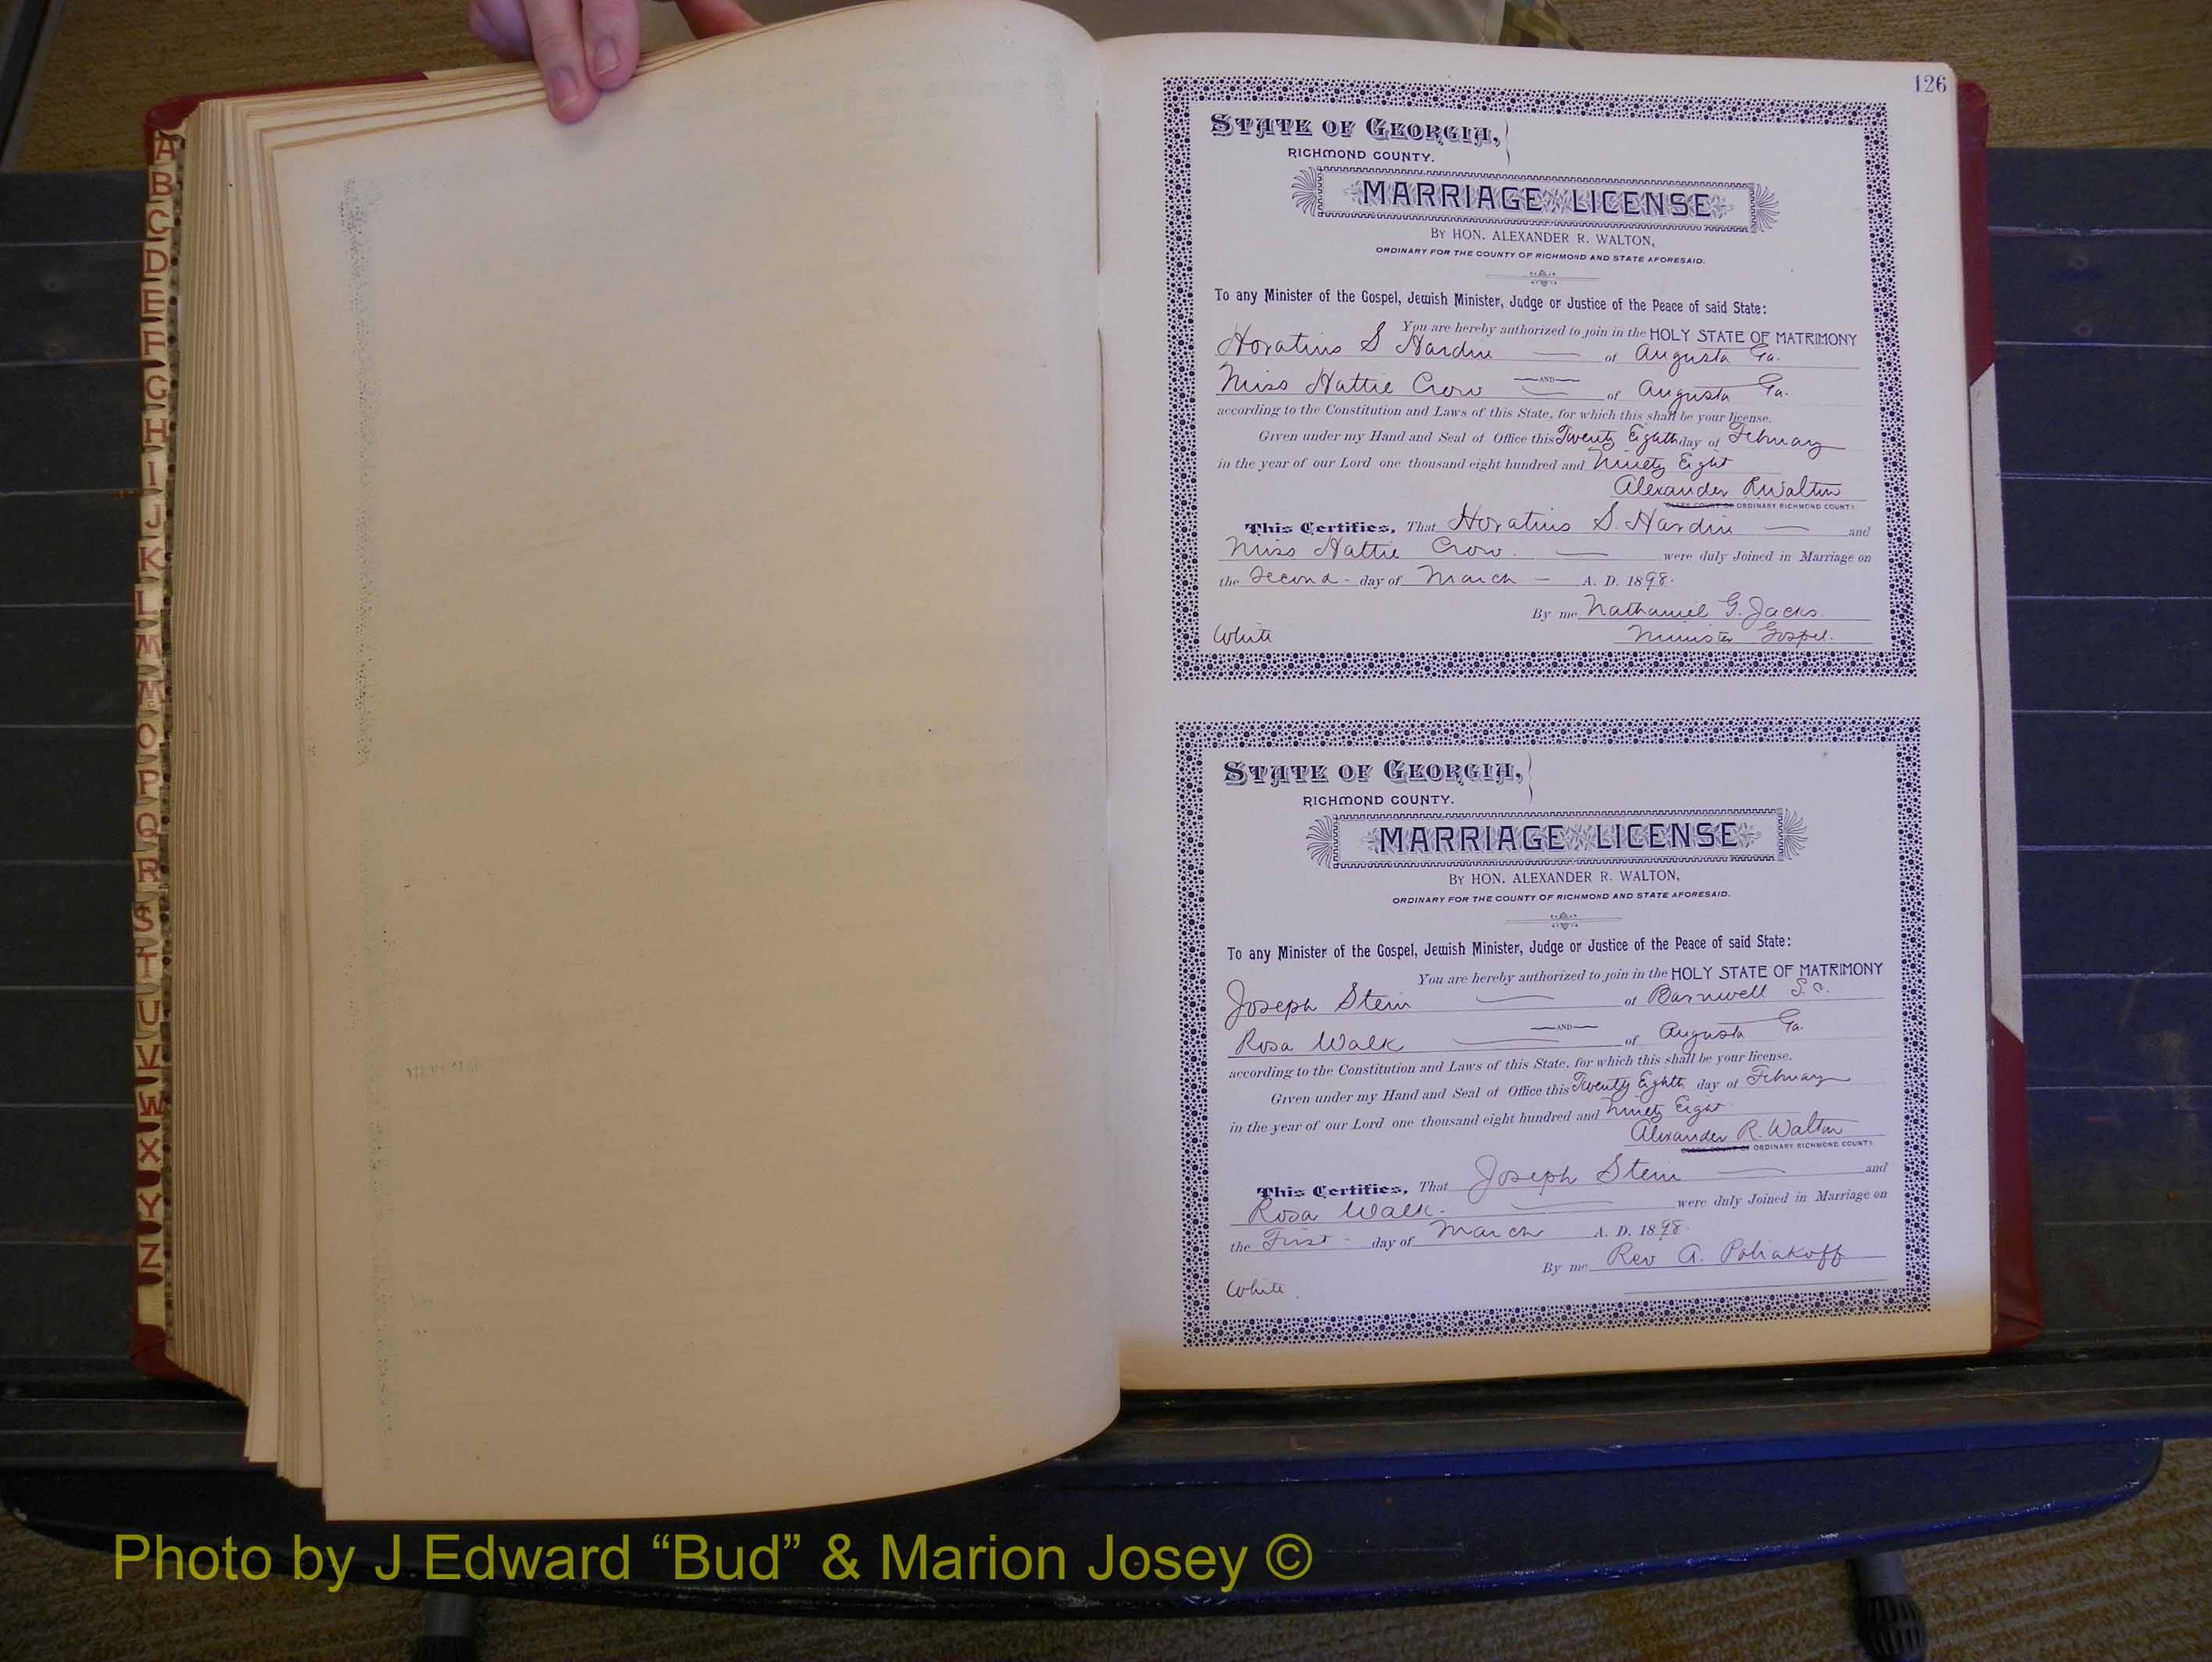 A
B
C
D
E
F
G
H
I
J
K
L
M
Mc
O
P
Q
R
S
T
U
V
W
X
Y
Z
126
STATE OF GEORGIA,
RICHMOND COUNTY.
MARRIAGE LICENSE
BY HON. ALEXANDER R. WALTON,
ORDINARY FOR THE COUNTY OF RICHMOND AND STATE AFORESAID.
To any Minister of the Gospel, Jewish Minister, Judge or Justice of the Peace of said State:
You are hereby authorized to join in the HOLY STATE OF MATRIMONY
Horatius S Hardin of Augusta Ga.
AND
Miss Hattie Crow of Augusta Ga.
according to the Constitution and Laws of this State, for which this shall be your license.
Given under my Hand and Seal of Office this Twenty Eighth day of February
in the year of our Lord one thousand eight hundred and Ninety Eight
Alexander R Walton
CLERK COURT OF ORDINARY RICHMOND COUNTY
This Certifies, That Horatius S. Hardin and
Miss Hattie Crow. were duly Joined in Marriage on
the Second - day of March - A. D. 1898.
By me Nathaniel G. Jacks.
White Minister Gospel.
STATE OF GEORGIA,
RICHMOND COUNTY.
MARRIAGE LICENSE
BY HON. ALEXANDER R. WALTON,
ORDINARY FOR THE COUNTY OF RICHMOND AND STATE AFORESAID.
To any Minister of the Gospel, Jewish Minister, Judge or Justice of the Peace of said State:
You are hereby authorized to join in the HOLY STATE OF MATRIMONY
Joseph Stein of Barnwell S.C.
AND
Rosa Walk of Augusta Ga.
according to the Constitution and Laws of this State, for which this shall be your license.
Given under my Hand and Seal of Office this Twenty Eighth day of February
in the year of our Lord one thousand eight hundred and Ninety Eight
Alexander R. Walton
CLERK COURT OF ORDINARY RICHMOND COUNTY
This Certifies, That Joseph Stein and
Rosa Walk. were duly Joined in Marriage on
the First - day of March A. D. 1898.
By me Rev A. Poliakoff
White.
Photo by J Edward “Bud” & Marion Josey ©